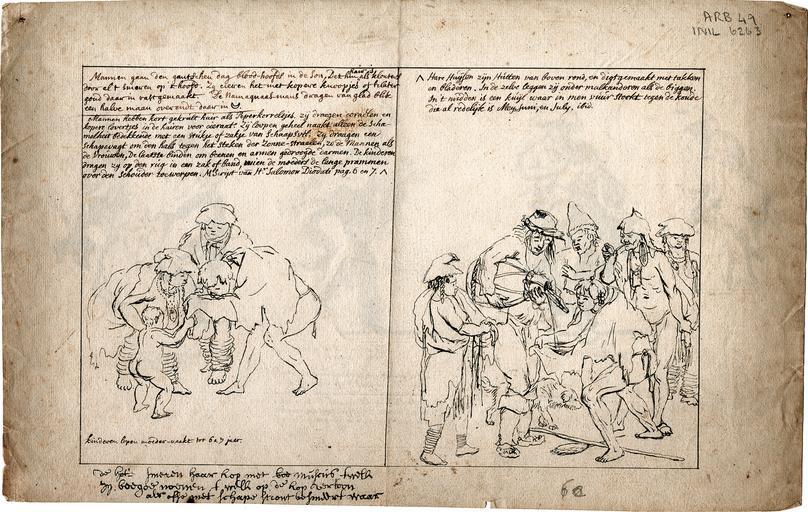 ARB 49
INIL 6263
Mannen gaan den gantschen dag bloods-hoofs in de Son, Het
door al t smeren op t hooft. Zy cieren het met kopere knoopjes of klater
goud daar in vast gemaakt. De Namaquaas mans dragen van glad blik
een halve maan overeindt daar in
Mannen hebben kort gekrult hair als Paperkorreltjes, zÿ draegen corraelen en
koper in de hairen voor cieraat. Zÿ loopen geheel naakt alleen de Scha-
melheit bedekkende met een stukje of zakje van Schaapsvel. Zÿ draegen een
Schapevagt om den hals tegen het steken der Zonne-straalen, zo de Mannen als
de Vrouwen. De laatste binden om beenen en armen gedroogde darmen. De kinderen
dragen zÿ op den rug in een zak of band, wien de moeders de lange prammen
over den schouder toewerpen. M. Script van Hr. Salomon pag. 6 en 7. Λ
Λ Hare Huijsen zÿn Hutten van boven rond, en digt gemaakt met takken
en bladeren. In de zelve leggen zÿ onder malkanderen als de biggen.
In 't midden is een kuijl waar in men vuur stookt tegen de koude
die al redelÿk is Meÿ, Juny, en July. ibid.
kinderen lopen moeder-naakt tot 6 a 7 jaer.
haar kop met
op de kop
met schape
62